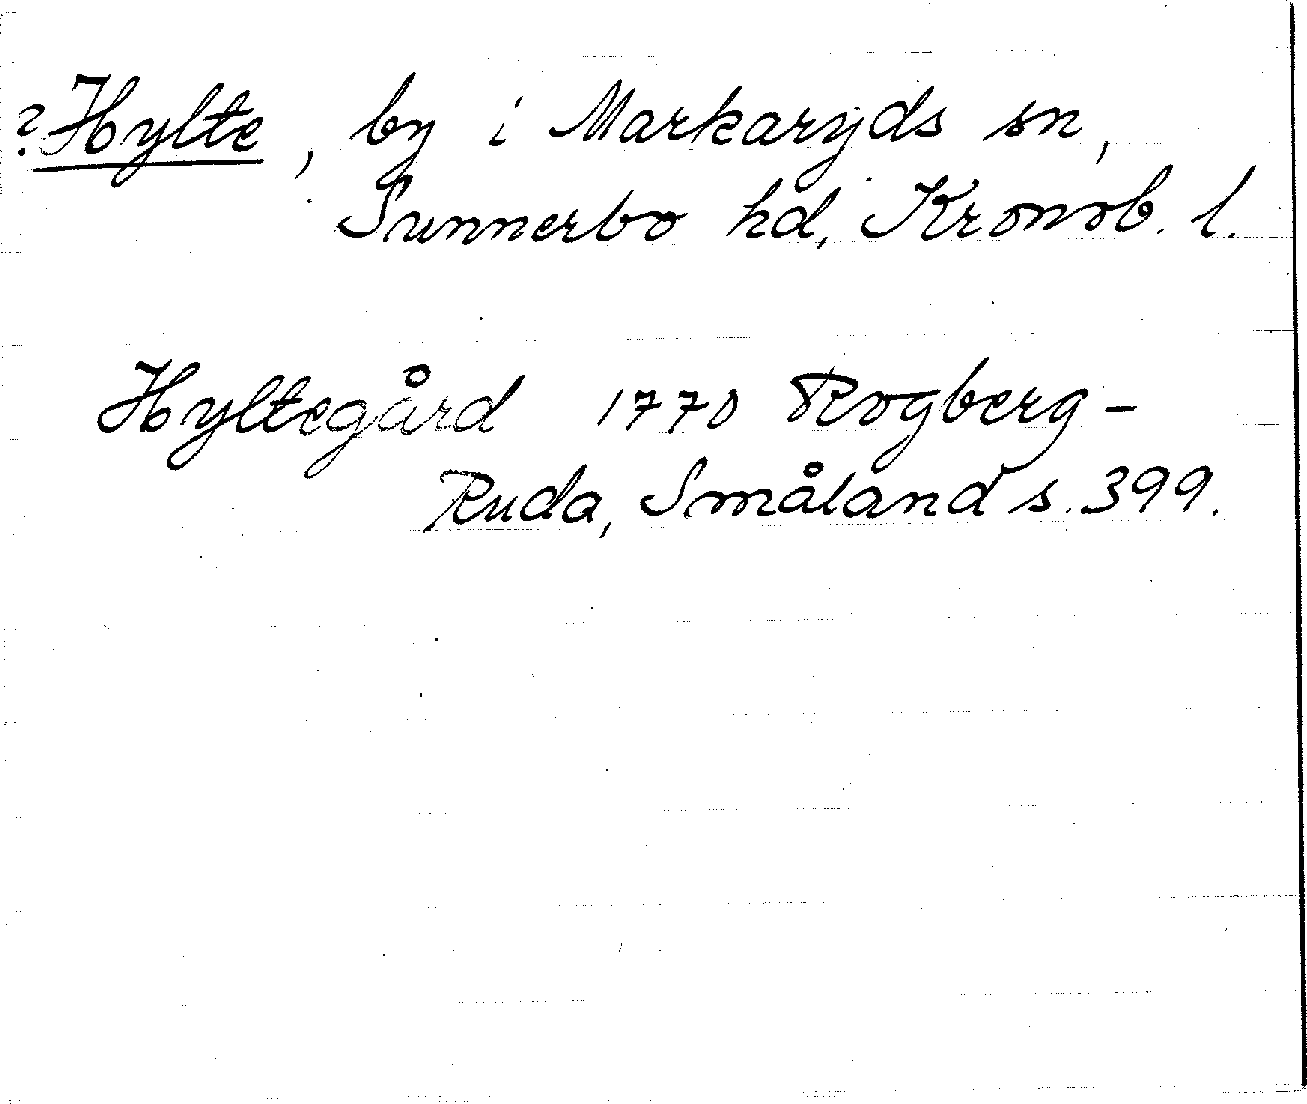 ? Hylte, by i Markaryds sn,
Sunnerbo hd, Kronob. l.
Hyltegård 1770 Rogberg-
Ruda, Småland s. 399.